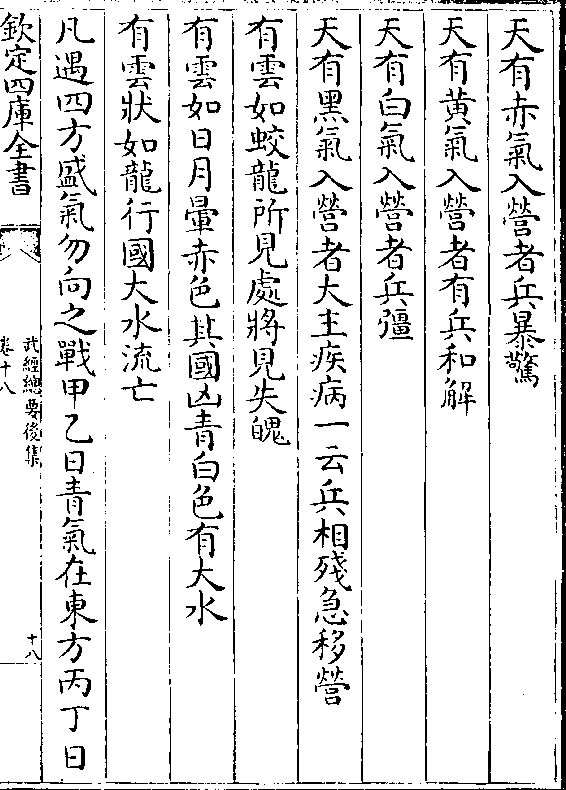 天有赤氣入營者兵暴驚
天有黄氣入營者有兵和解
天有白氣入營者兵彊
天有黑氣入營者大主疾病一云兵相殘急移營
有雲如蛟龍所見處將見失魄
有雲如日月暈赤色其國凶青白色有大水
有雲狀如龍行國大水流亡
凡遇四方盛氣勿向之戰甲乙日青氣在東方丙丁日
欽定四庫全書
武經總要後集
卷十八
十八